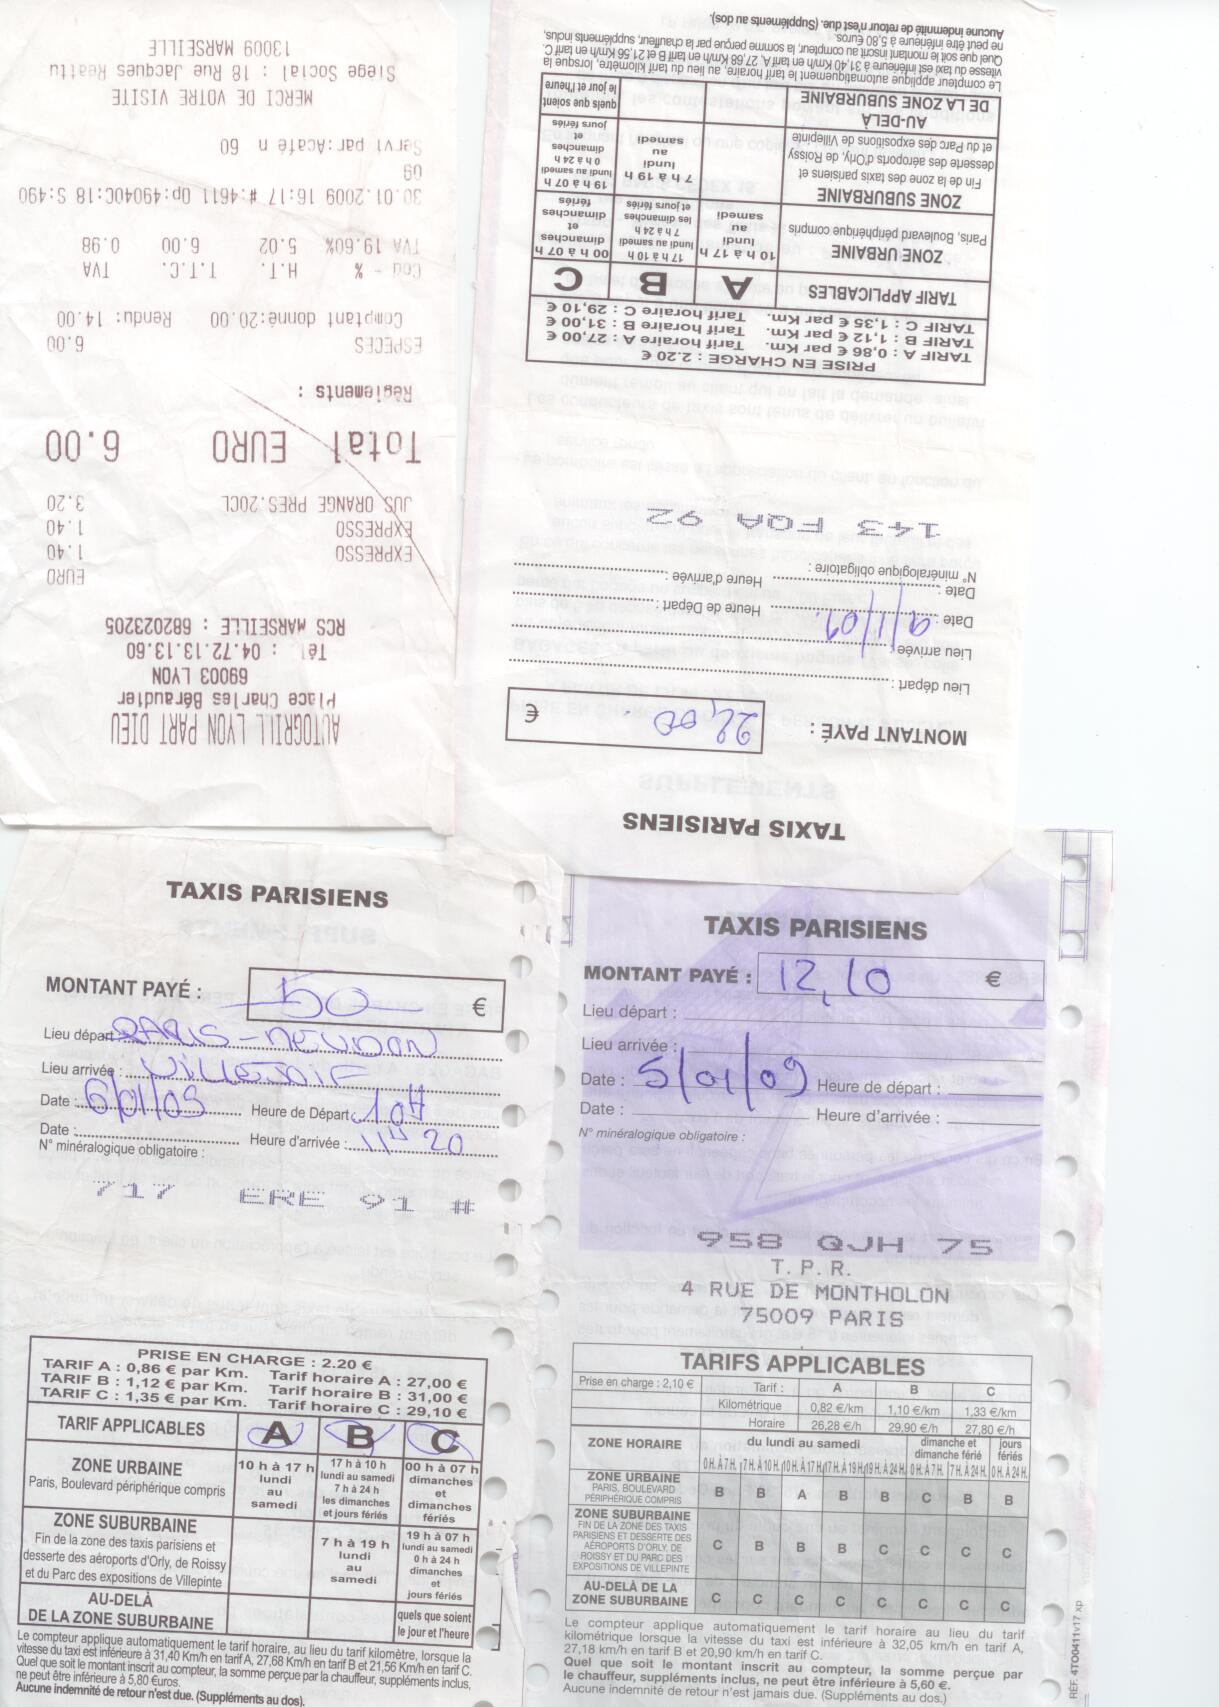 AUTOGRILL LYON PART DIEU
Place Charles Béraudier
69003 LYON
Tél. : 04.72.13.13.60
RCS MARSEILLE : 682023205
EURO
EXPRESSO 1.40
EXPRESSO 1.40
JUS ORANGE PRES.20CL 3.20
Total EURO 6.00
Règlements :
ESPECES 6.00
Comptant donné:20.00 Rendu: 14.00
Cou - % H.T. T.T.C. TVA
TVA 19.60% 5.02 6.00 0.98
30.01.2009 16:17 #:4611 Op:49040C:18 S:490
09
Servi par:Acafé n 60
MERCI DE VOTRE VISITE
Siege Social : 18 Rue Jacques Reattu
13009 MARSEILLE
TAXIS PARISIENS
MONTANT PAYÉ : 22,00 €
Lieu départ :
Lieu arrivée :
Date : 9/1/09. Heure de Départ :
Date : Heure d'arrivée :
N° minéralogique obligatoire :
143 FQA 92
PRISE EN CHARGE : 2.20 €
TARIF A : 0,86 € par Km. Tarif horaire A : 27,00 €
TARIF B : 1,12 € par Km. Tarif horaire B : 31,00 €
TARIF C : 1,35 € par Km. Tarif horaire C : 29,10 €
TARIF APPLICABLES A B C
ZONE URBAINE
Paris, Boulevard périphérique compris
10 h à 17 h
lundi
au
samedi
17 h à 10 h
lundi au samedi
7 h à 24 h
les dimanches
et jours fériés
00 h à 07 h
dimanches
et
dimanches
fériés
ZONE SUBURBAINE
Fin de la zone des taxis parisiens et
desserte des aéroports d'Orly, de Roissy
et du Parc des expositions de Villepinte
7 h à 19 h
lundi
au
samedi
19 h à 07 h
lundi au samedi
0 h à 24 h
dimanches
et
jours fériés
AU-DELÀ
DE LA ZONE SUBURBAINE
quels que soient
le jour et l'heure
Le compteur applique automatiquement le tarif horaire, au lieu du tarif kilomètre, lorsque la
vitesse du taxi est inférieure à 31,40 Km/h en tarif A, 27,68 Km/h en tarif B et 21,56 Km/h en tarif C.
Quel que soit le montant inscrit au compteur, la somme perçue par la chauffeur, suppléments inclus,
ne peut être inférieure à 5,80 Euros.
Aucune indemnité de retour n'est due. (Suppléments au dos).
TAXIS PARISIENS
MONTANT PAYÉ : 50 €
Lieu départ : PARIS-MEUDON
Lieu arrivée : VILLEJUIF
Date : 6/01/09 Heure de Départ : 10H
Date : Heure d'arrivée : 11H 20
N° minéralogique obligatoire :
717 ERE 91 #
PRISE EN CHARGE : 2.20 €
TARIF A : 0,86 € par Km. Tarif horaire A : 27,00 €
TARIF B : 1,12 € par Km. Tarif horaire B : 31,00 €
TARIF C : 1,35 € par Km. Tarif horaire C : 29,10 €
TARIF APPLICABLES A B C
ZONE URBAINE
Paris, Boulevard périphérique compris
10 h à 17 h
lundi
au
samedi
17 h à 10 h
lundi au samedi
7 h à 24 h
les dimanches
et jours fériés
00 h à 07 h
dimanches
et
dimanches
fériés
ZONE SUBURBAINE
Fin de la zone des taxis parisiens et
desserte des aéroports d'Orly, de Roissy
et du Parc des expositions de Villepinte
7 h à 19 h
lundi
au
samedi
19 h à 07 h
lundi au samedi
0 h à 24 h
dimanches
et
jours fériés
AU-DELÀ
DE LA ZONE SUBURBAINE
quels que soient
le jour et l'heure
Le compteur applique automatiquement le tarif horaire, au lieu du tarif kilomètre, lorsque la
vitesse du taxi est inférieure à 31,40 Km/h en tarif A, 27,68 Km/h en tarif B et 21,56 Km/h en tarif C.
Quel que soit le montant inscrit au compteur, la somme perçue par la chauffeur, suppléments inclus,
ne peut être inférieure à 5,80 Euros.
Aucune indemnité de retour n'est due. (Suppléments au dos).
TAXIS PARISIENS
MONTANT PAYÉ : 12,10 €
Lieu départ :
Lieu arrivée :
Date : 5/01/09 Heure de départ :
Date : Heure d'arrivée :
N° minéralogique obligatoire :
958 QJH 75
T. P. R.
4 RUE DE MONTHOLON
75009 PARIS
TARIFS APPLICABLES
Prise en charge : 2,10 € Tarif : A B C
Kilométrique 0,82 €/km 1,10 €/km 1,33 €/km
Horaire 26,28 €/h 29,90 €/h 27,80 €/h
ZONE HORAIRE du lundi au samedi dimanche et dimanche férié jours fériés
0 H. À 7 H. 7 H. À 10 H. 10 H. À 17 H. 17 H. À 19 H. 19 H. À 24 H. 0 H. À 7 H. 7 H. À 24 H. 0 H. À 24 H.
ZONE URBAINE
PARIS, BOULEVARD
PÉRIPHÉRIQUE COMPRIS
B B A B B C B B
ZONE SUBURBAINE
FIN DE LA ZONE DES TAXIS
PARISIENS ET DESSERTE DES
AÉROPORTS D'ORLY, DE
ROISSY ET DU PARC DES
EXPOSITIONS DE VILLEPINTE
C B B B C C C C
AU-DELÀ DE LA
ZONE SUBURBAINE
C C C C C C C C
Le compteur applique automatiquement le tarif horaire au lieu du tarif
kilométrique lorsque la vitesse du taxi est inférieure à 32,05 km/h en tarif A,
27,18 km/h en tarif B et 20,90 km/h en tarif C.
Quel que soit le montant inscrit au compteur, la somme perçue par
le chauffeur, suppléments inclus, ne peut être inférieure à 5,60 €.
Aucune indemnité de retour n'est jamais due. (Suppléments au dos.)
RÉF. 4TO0411v17 xp